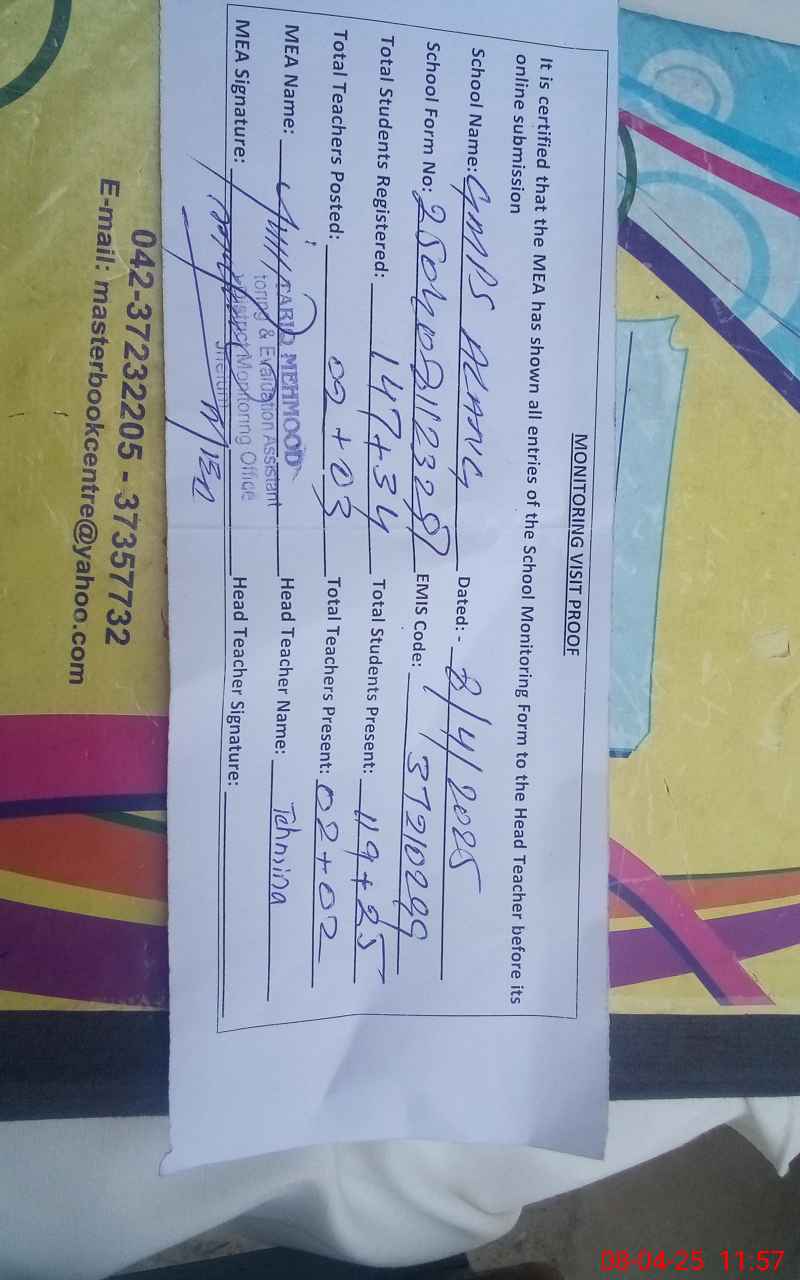 MONITORING VISIT PROOF
It is certified that the MEA has shown all entries of the School Monitoring Form to the Head Teacher before its
online submission
School Name: GMPS ALANG Dated: - 8/4/2025
School Form No: EMIS Code: 37210299
Total Students Registered: 147+34 Total Students Present: 119+25
Total Teachers Posted: 02+03 Total Teachers Present: 02+02
MEA Name: TARIQ MEHMOOD Head Teacher Name: Tehmina
toring & Evaluation Assistant
District Monitoring Office
Jhelum
MEA Signature: Head Teacher Signature:
042-37232205 - 37357732
E-mail: masterbookcentre@yahoo.com
08-04-25 11:57